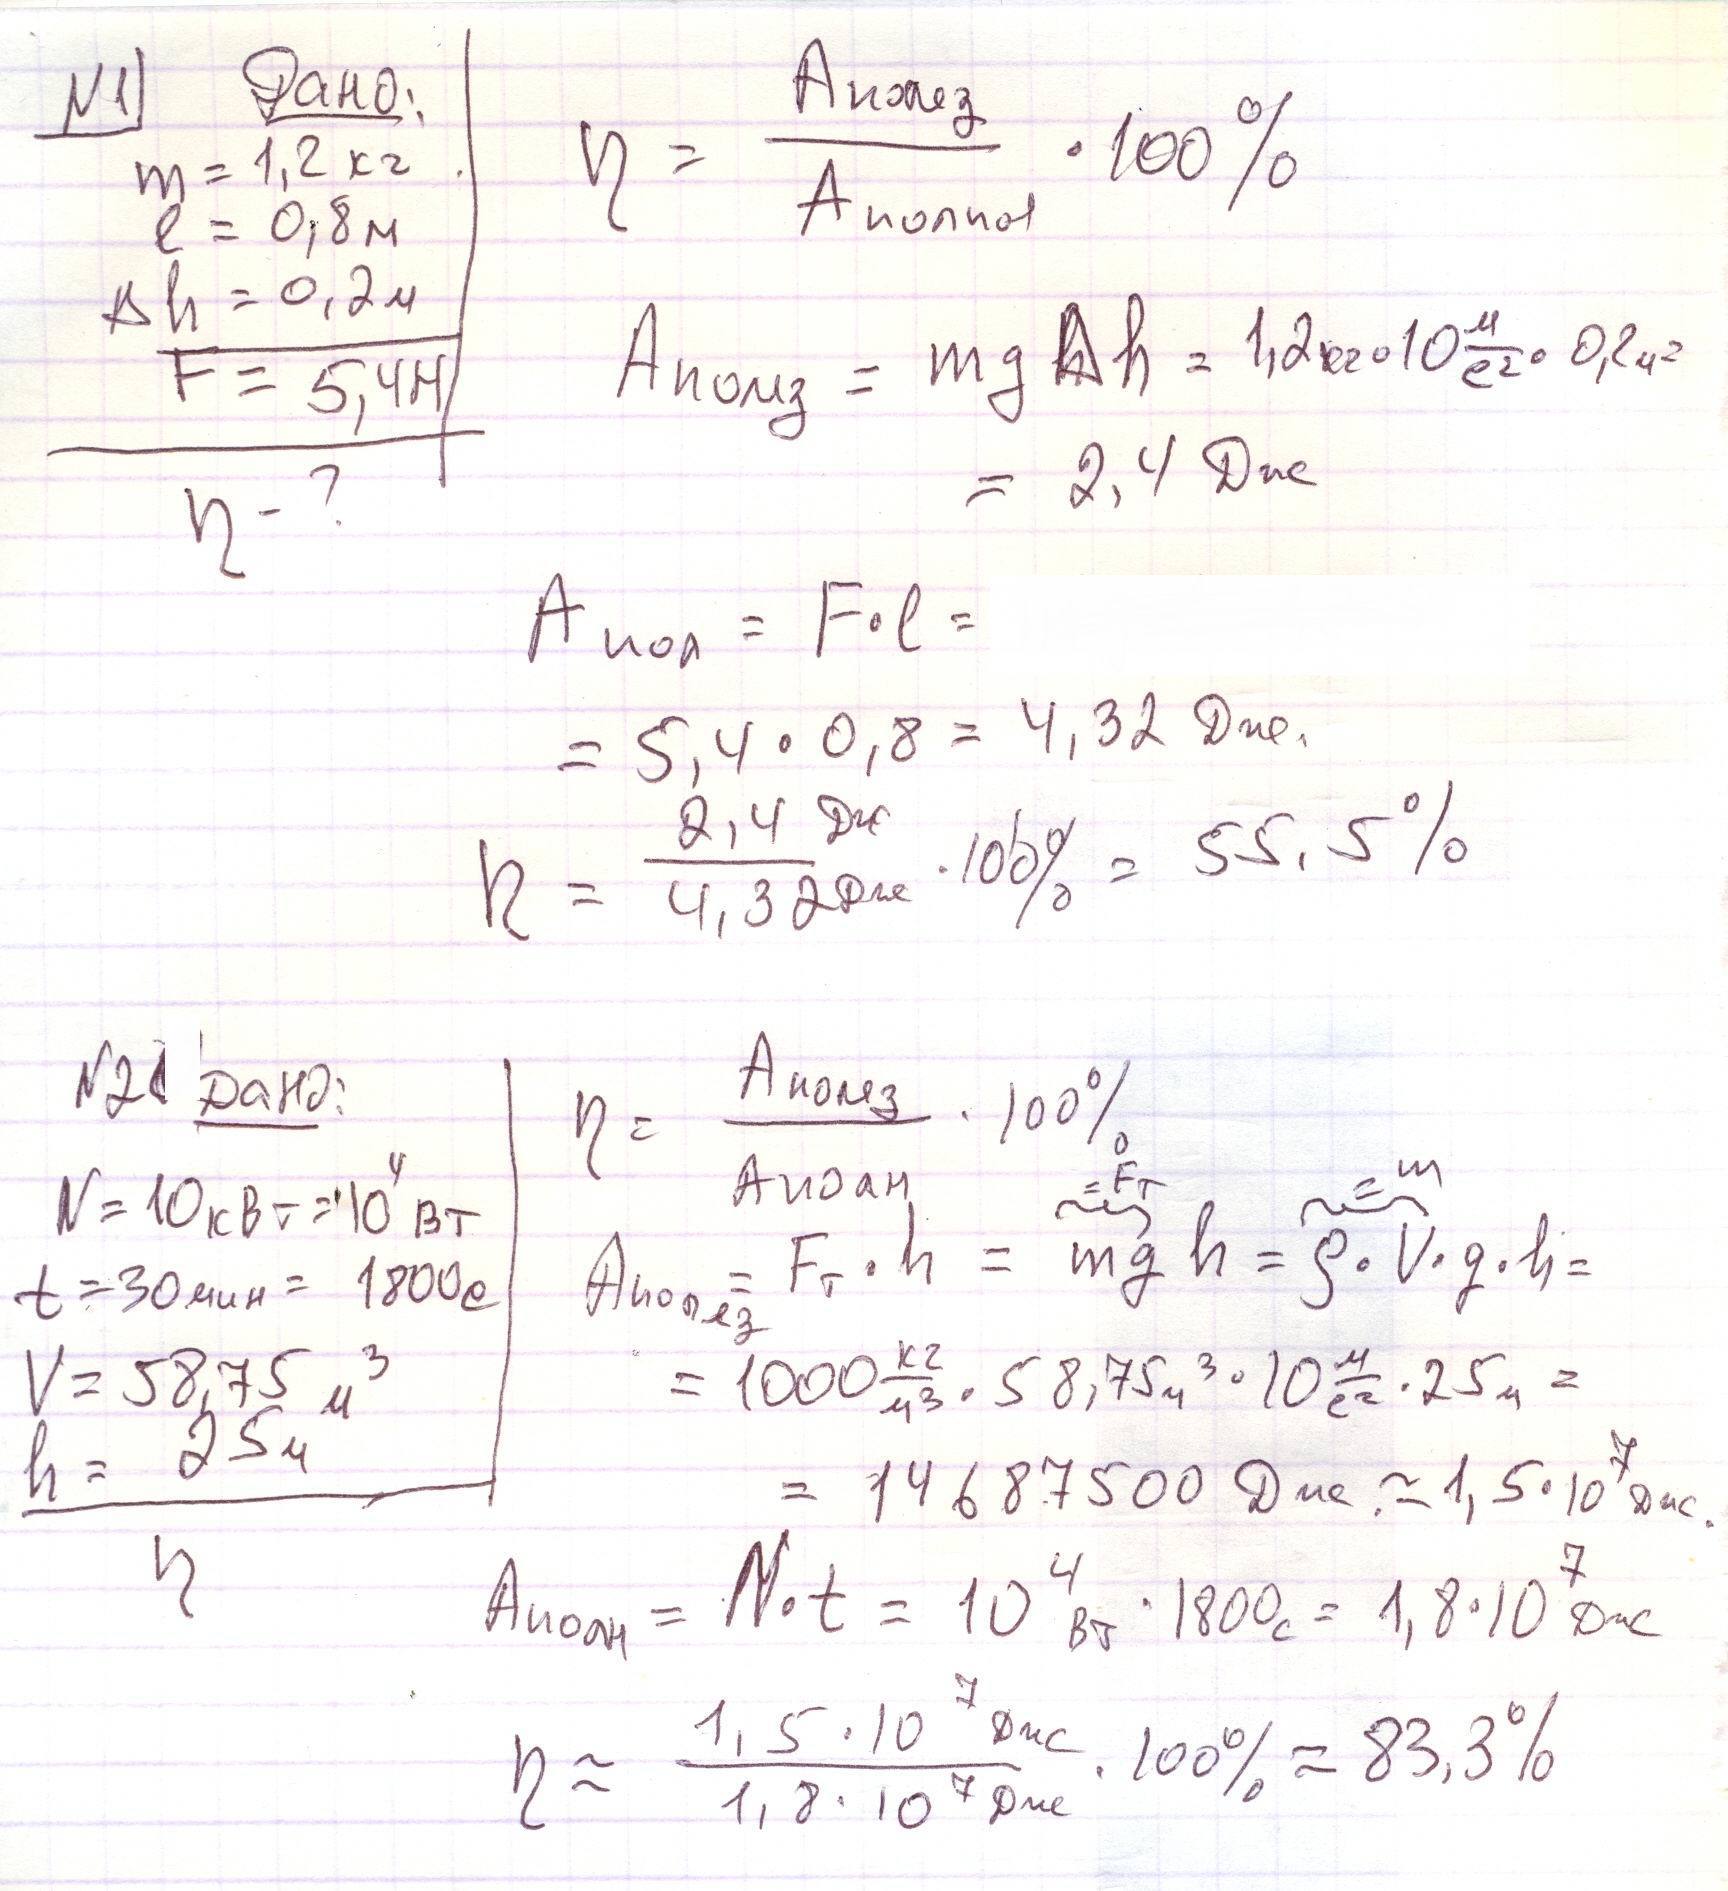 №1 Дано:
m = 1,2 кг
l = 0,8 м
Δh = 0,2 м
F = 5,4 Н
η - ?
η = Aполез / Aполной · 100%
Aполез = mgΔh = 1,2 кг · 10 м/с² · 0,2 м =
= 2,4 Дж
Aпол = F · l =
= 5,4 · 0,8 = 4,32 Дж.
η = 2,4 Дж / 4,32 Дж · 100% = 55,5%
№2 Дано:
N = 10 кВт = 10⁴ Вт
t = 30 мин = 1800 с
V = 58,75 м³
h = 25 м
η
η = Aполез / Aполн · 100%
= Fт = m
Aполез = Fт · h = mg h = ρ · V · g · h =
= 1000 кг/м³ · 58,75 м³ · 10 м/с² · 25 м =
= 14687500 Дж ≃ 1,5 · 10⁷ Дж.
Aполн = N · t = 10⁴ Вт · 1800 с = 1,8 · 10⁷ Дж
η ≃ 1,5 · 10⁷ Дж / 1,8 · 10⁷ Дж · 100% ≃ 83,3%